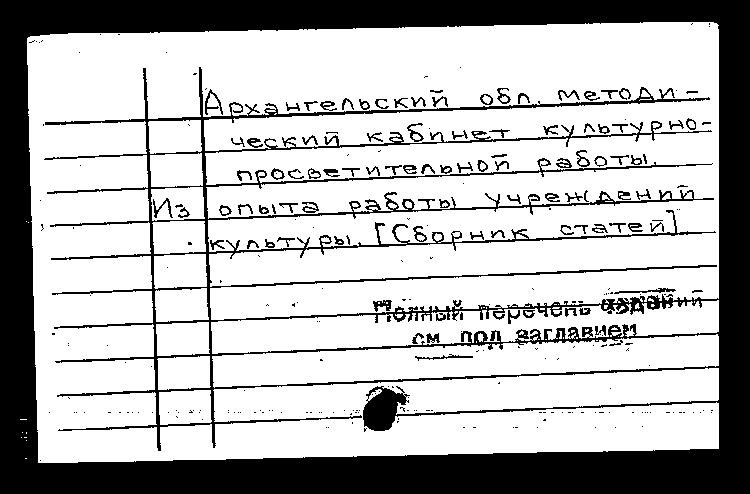 Архангельский обл. методи-
ческий кабинет культурно-
просветительной работы.
Из опыта работы учреждений
культуры. [Сборник статей]
Полный перечень изданий
см. под заглавием